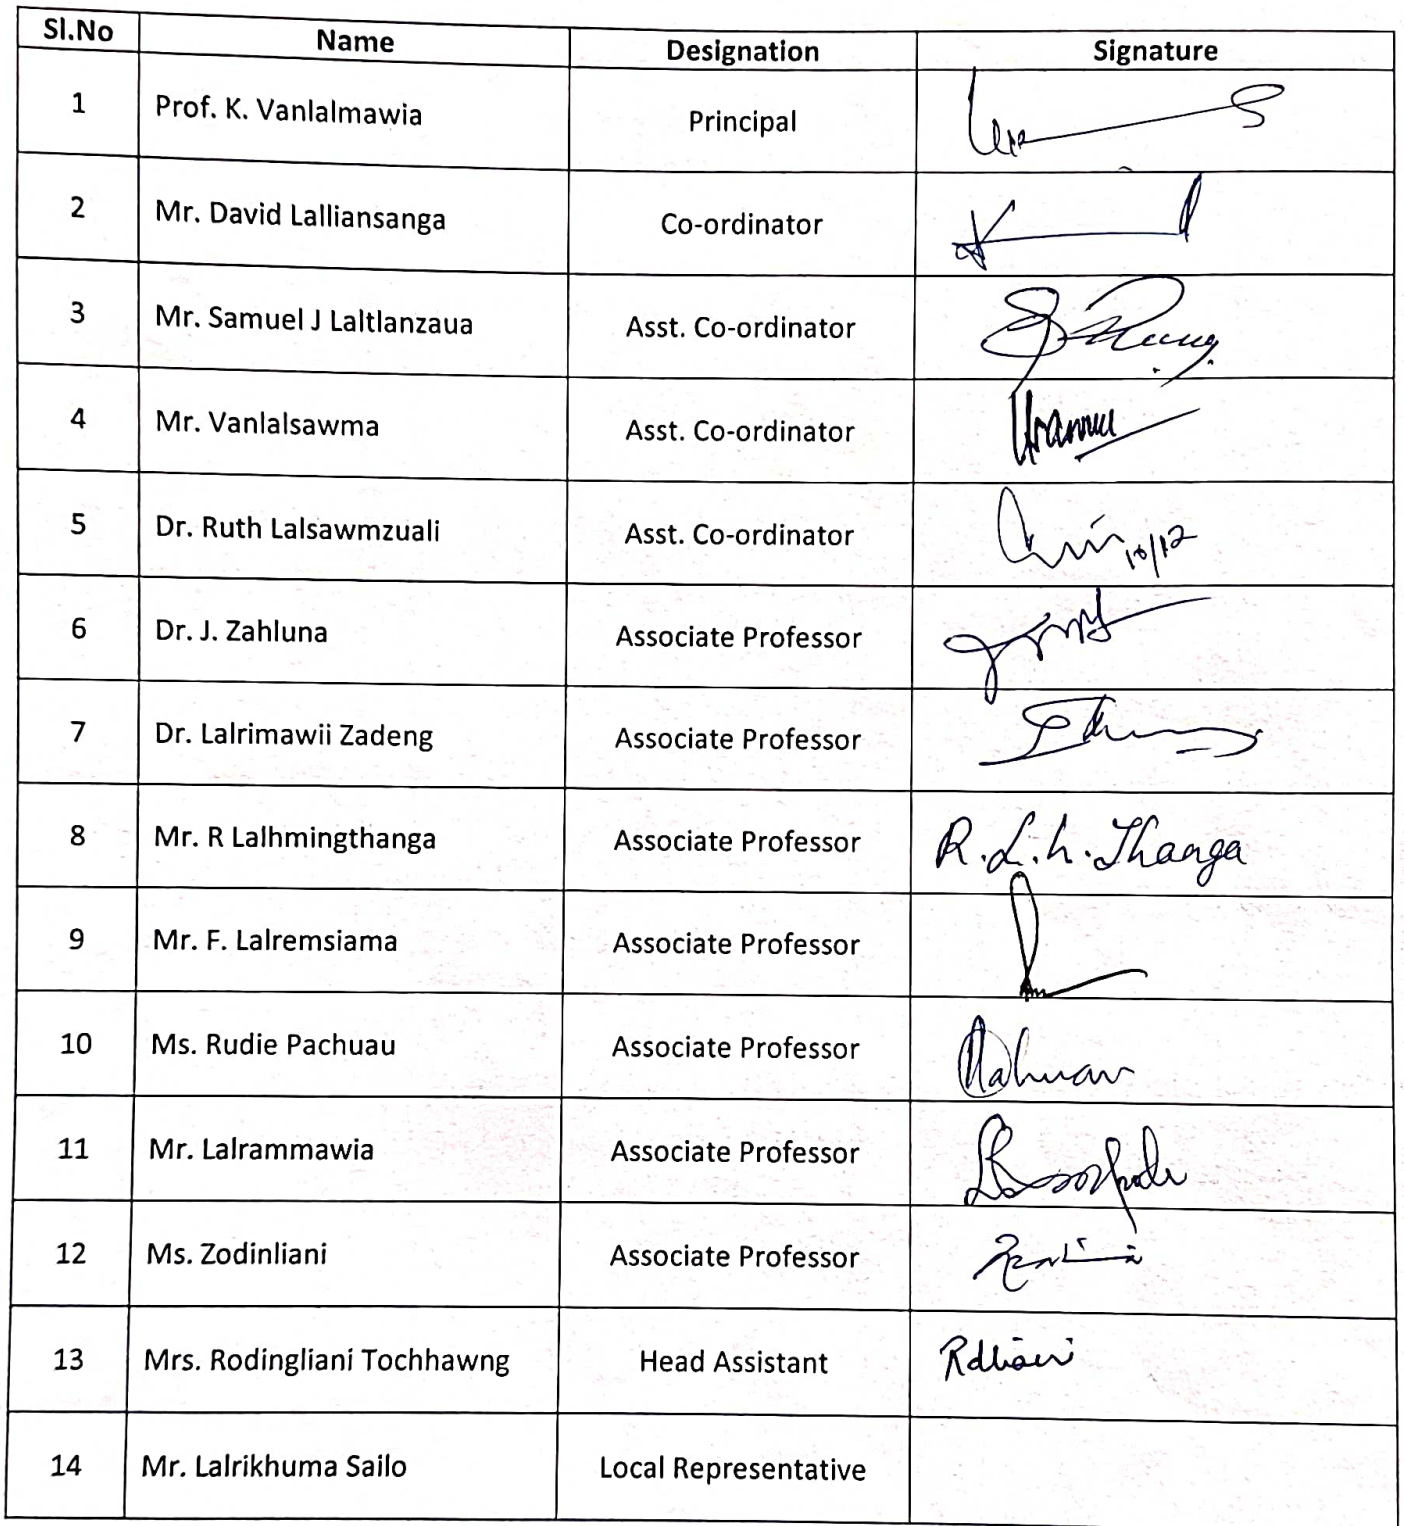 Sl.No Name Designation Signature
1 Prof. K. Vanlalmawia Principal
2 Mr. David Lalliansanga Co-ordinator
3 Mr. Samuel J Laltlanzaua Asst. Co-ordinator
4 Mr. Vanlalsawma Asst. Co-ordinator
5 Dr. Ruth Lalsawmzuali Asst. Co-ordinator 10/12
6 Dr. J. Zahluna Associate Professor
7 Dr. Lalrimawii Zadeng Associate Professor
8 Mr. R Lalhmingthanga Associate Professor R.L.h.Thanga
9 Mr. F. Lalremsiama Associate Professor
10 Ms. Rudie Pachuau Associate Professor
11 Mr. Lalrammawia Associate Professor
12 Ms. Zodinliani Associate Professor
13 Mrs. Rodingliani Tochhawng Head Assistant
14 Mr. Lalrikhuma Sailo Local Representative